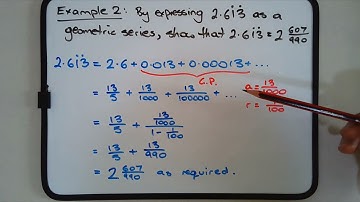 Example 2: By expressing 2.61̇3̇ as a
geometric series, show that 2.61̇3̇ = 2 607/990
2.61̇3̇ = 2.6 + 0.013 + 0.00013 + ...
G.P.
= 13/5 + 13/1000 + 13/100000 + ...
a = 13/1000
r = 1/100
= 13/5 + (13/1000)/(1 - 1/100)
= 13/5 + 13/990
= 2 607/990 as required.